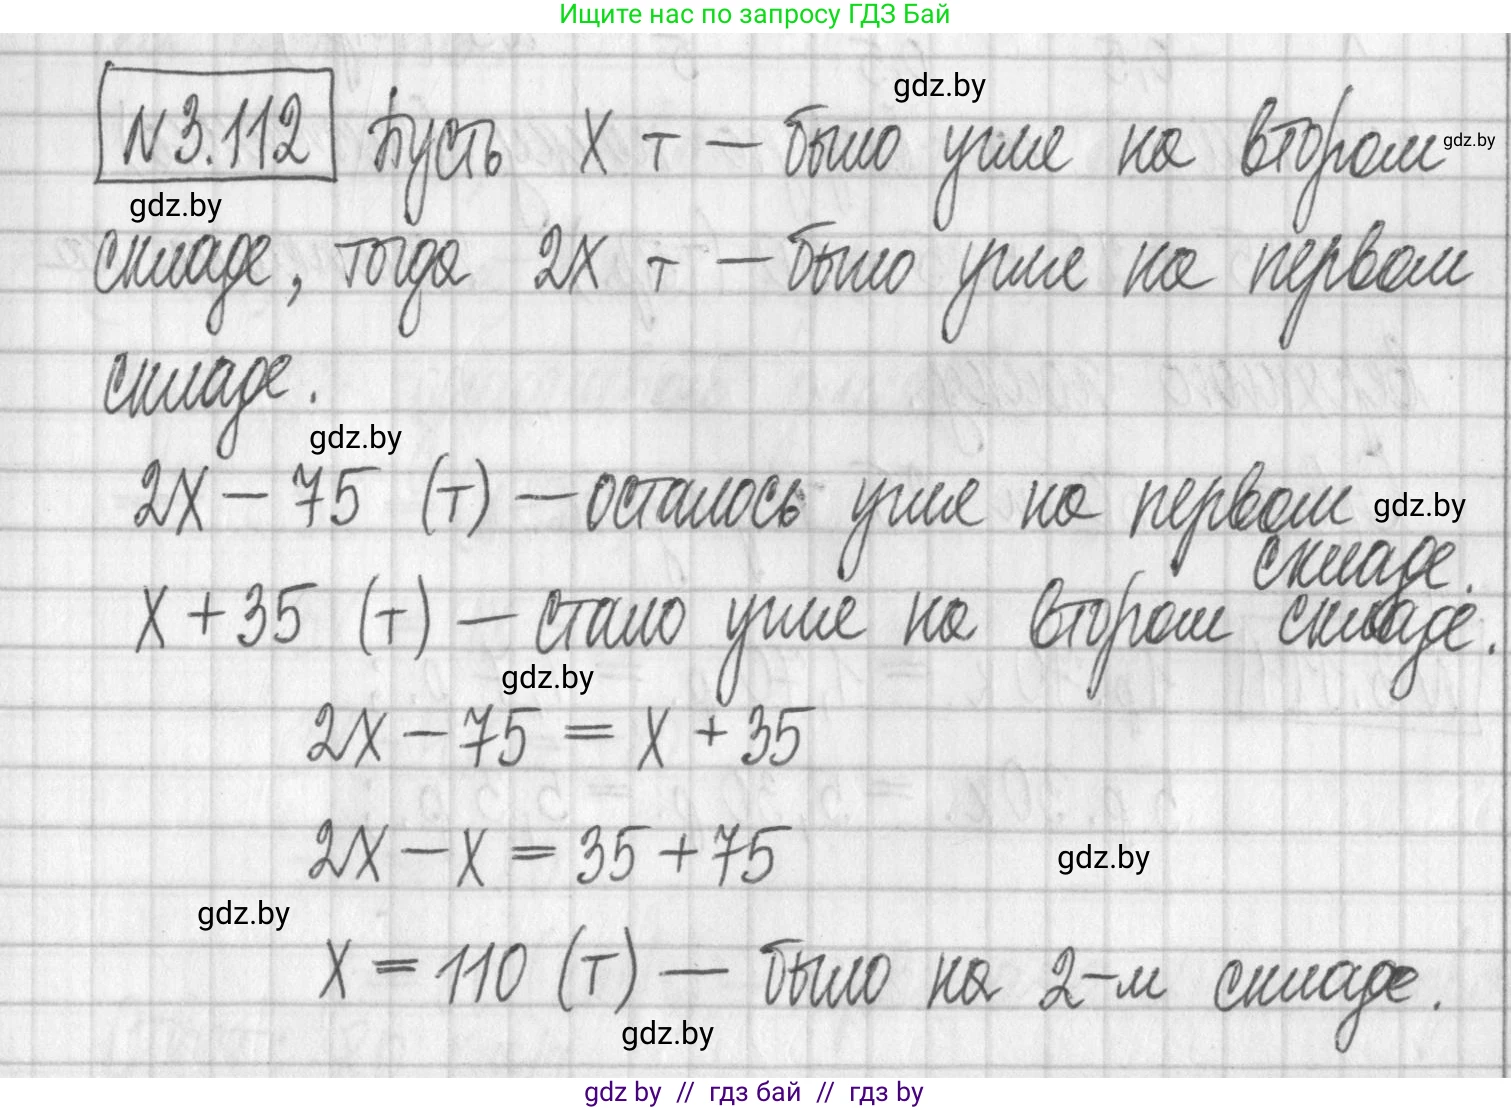 Ищите нас по запросу ГДЗ Бай
gdz.by
N 3.112 Пусть x т — было угля на втором gdz.by
gdz.by
складе, тогда 2x т — было угля на первом
складе.
gdz.by
2x − 75 (т) — осталось угля на первом gdz.by
складе.
x + 35 (т) — стало угля на втором складе.
gdz.by
2x − 75 = x + 35
2x − x = 35 + 75
gdz.by
gdz.by
x = 110 (т) — было на 2-м складе.
gdz.by
gdz by // гдз бай // гдз by